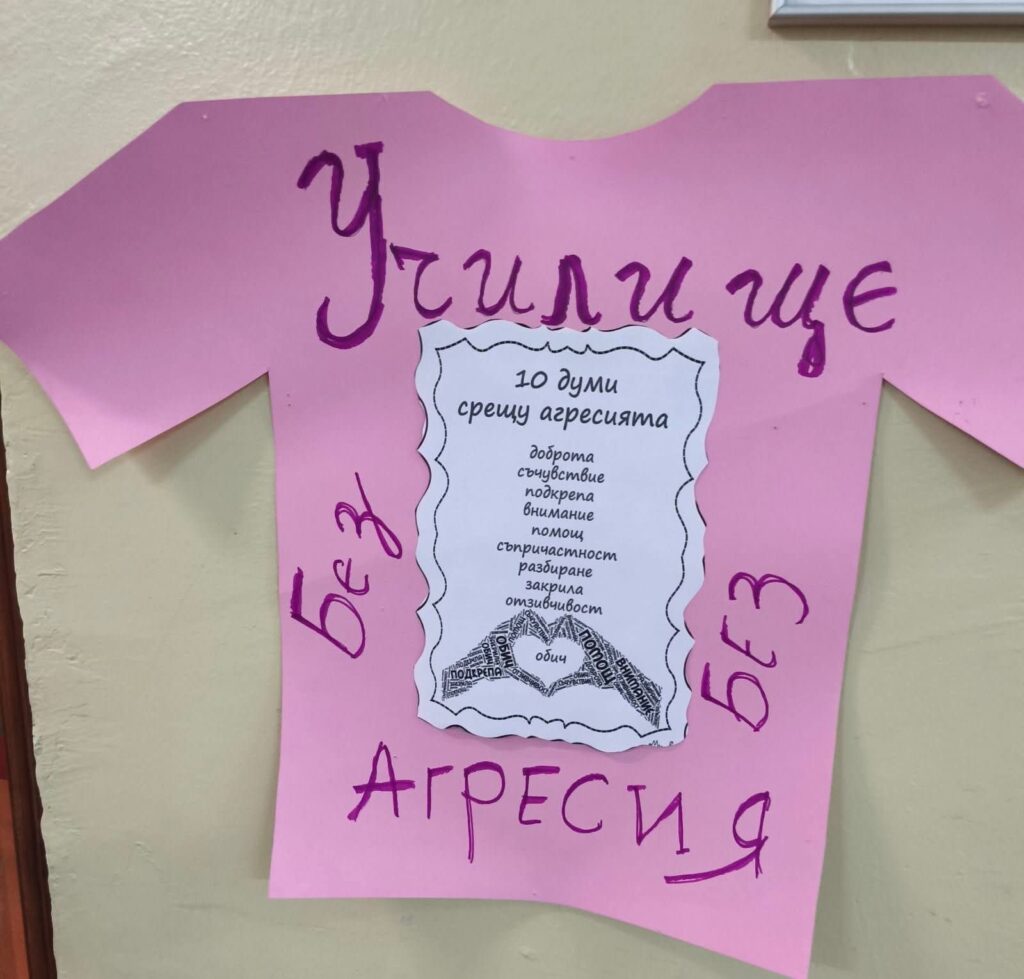 Училище
Без
БЕЗ
АгРЕСИЯ
10 думи
срещу агресията
доброта
съчувствие
подкрепа
внимание
помощ
съпричастност
разбиране
закрила
отзивчивост
обич
ПОДКРЕПА
ОБИЧ
ПОМОЩ
ВНИМАНИЕ